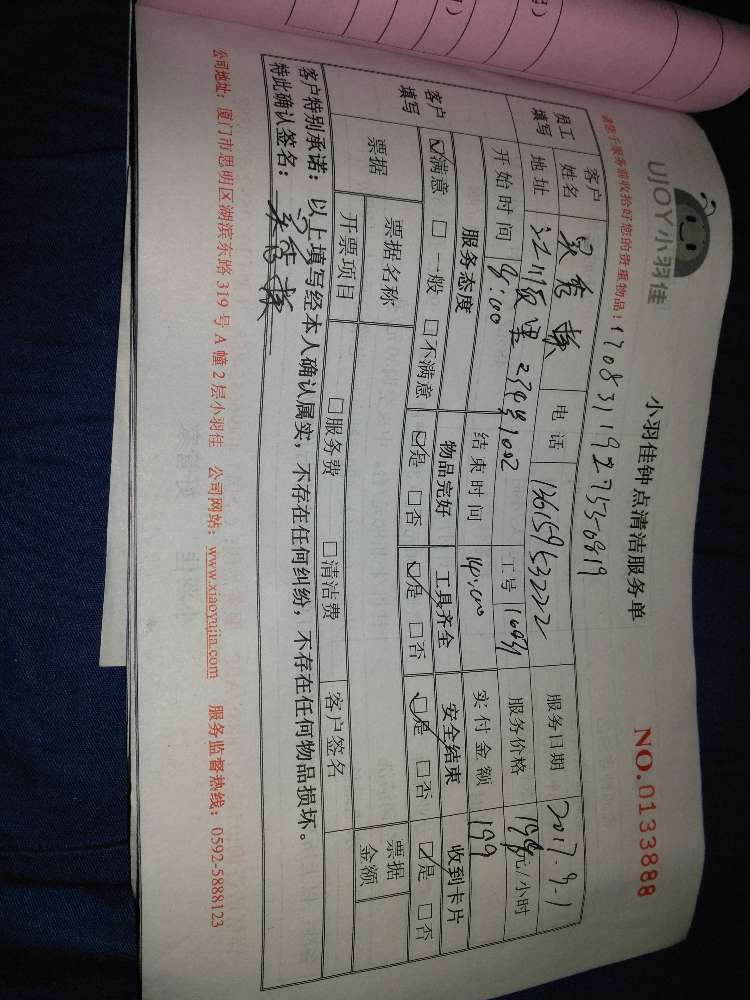 UJOY小羽佳
小羽佳钟点清洁服务单
NO.0133888
请您于服务前收拾好您的贵重物品!
170831192753-0819
员工填写 客户姓名 电话 服务日期 2017.9.1
地址 234号1002 工号 服务价格 199元/小时
开始时间 8:00 结束时间 实付金额 199
客户填写 服务态度 物品完好 工具齐全 安全结束 收到卡片
☑满意 □一般 □不满意 ☑是 □否 ☑是 □否 ☑是 □否 ☑是 □否
票据 票据名称 票据金额
开票项目 □服务费 □清洁费 客户签名
客户特别承诺:以上填写经本人确认属实,不存在任何纠纷,不存在任何物品损坏。
特此确认签名:
公司地址:厦门市思明区湖滨东路319号A幢2层小羽佳 公司网站:www.xiaoyujia.com 服务监督热线:0592-5888123